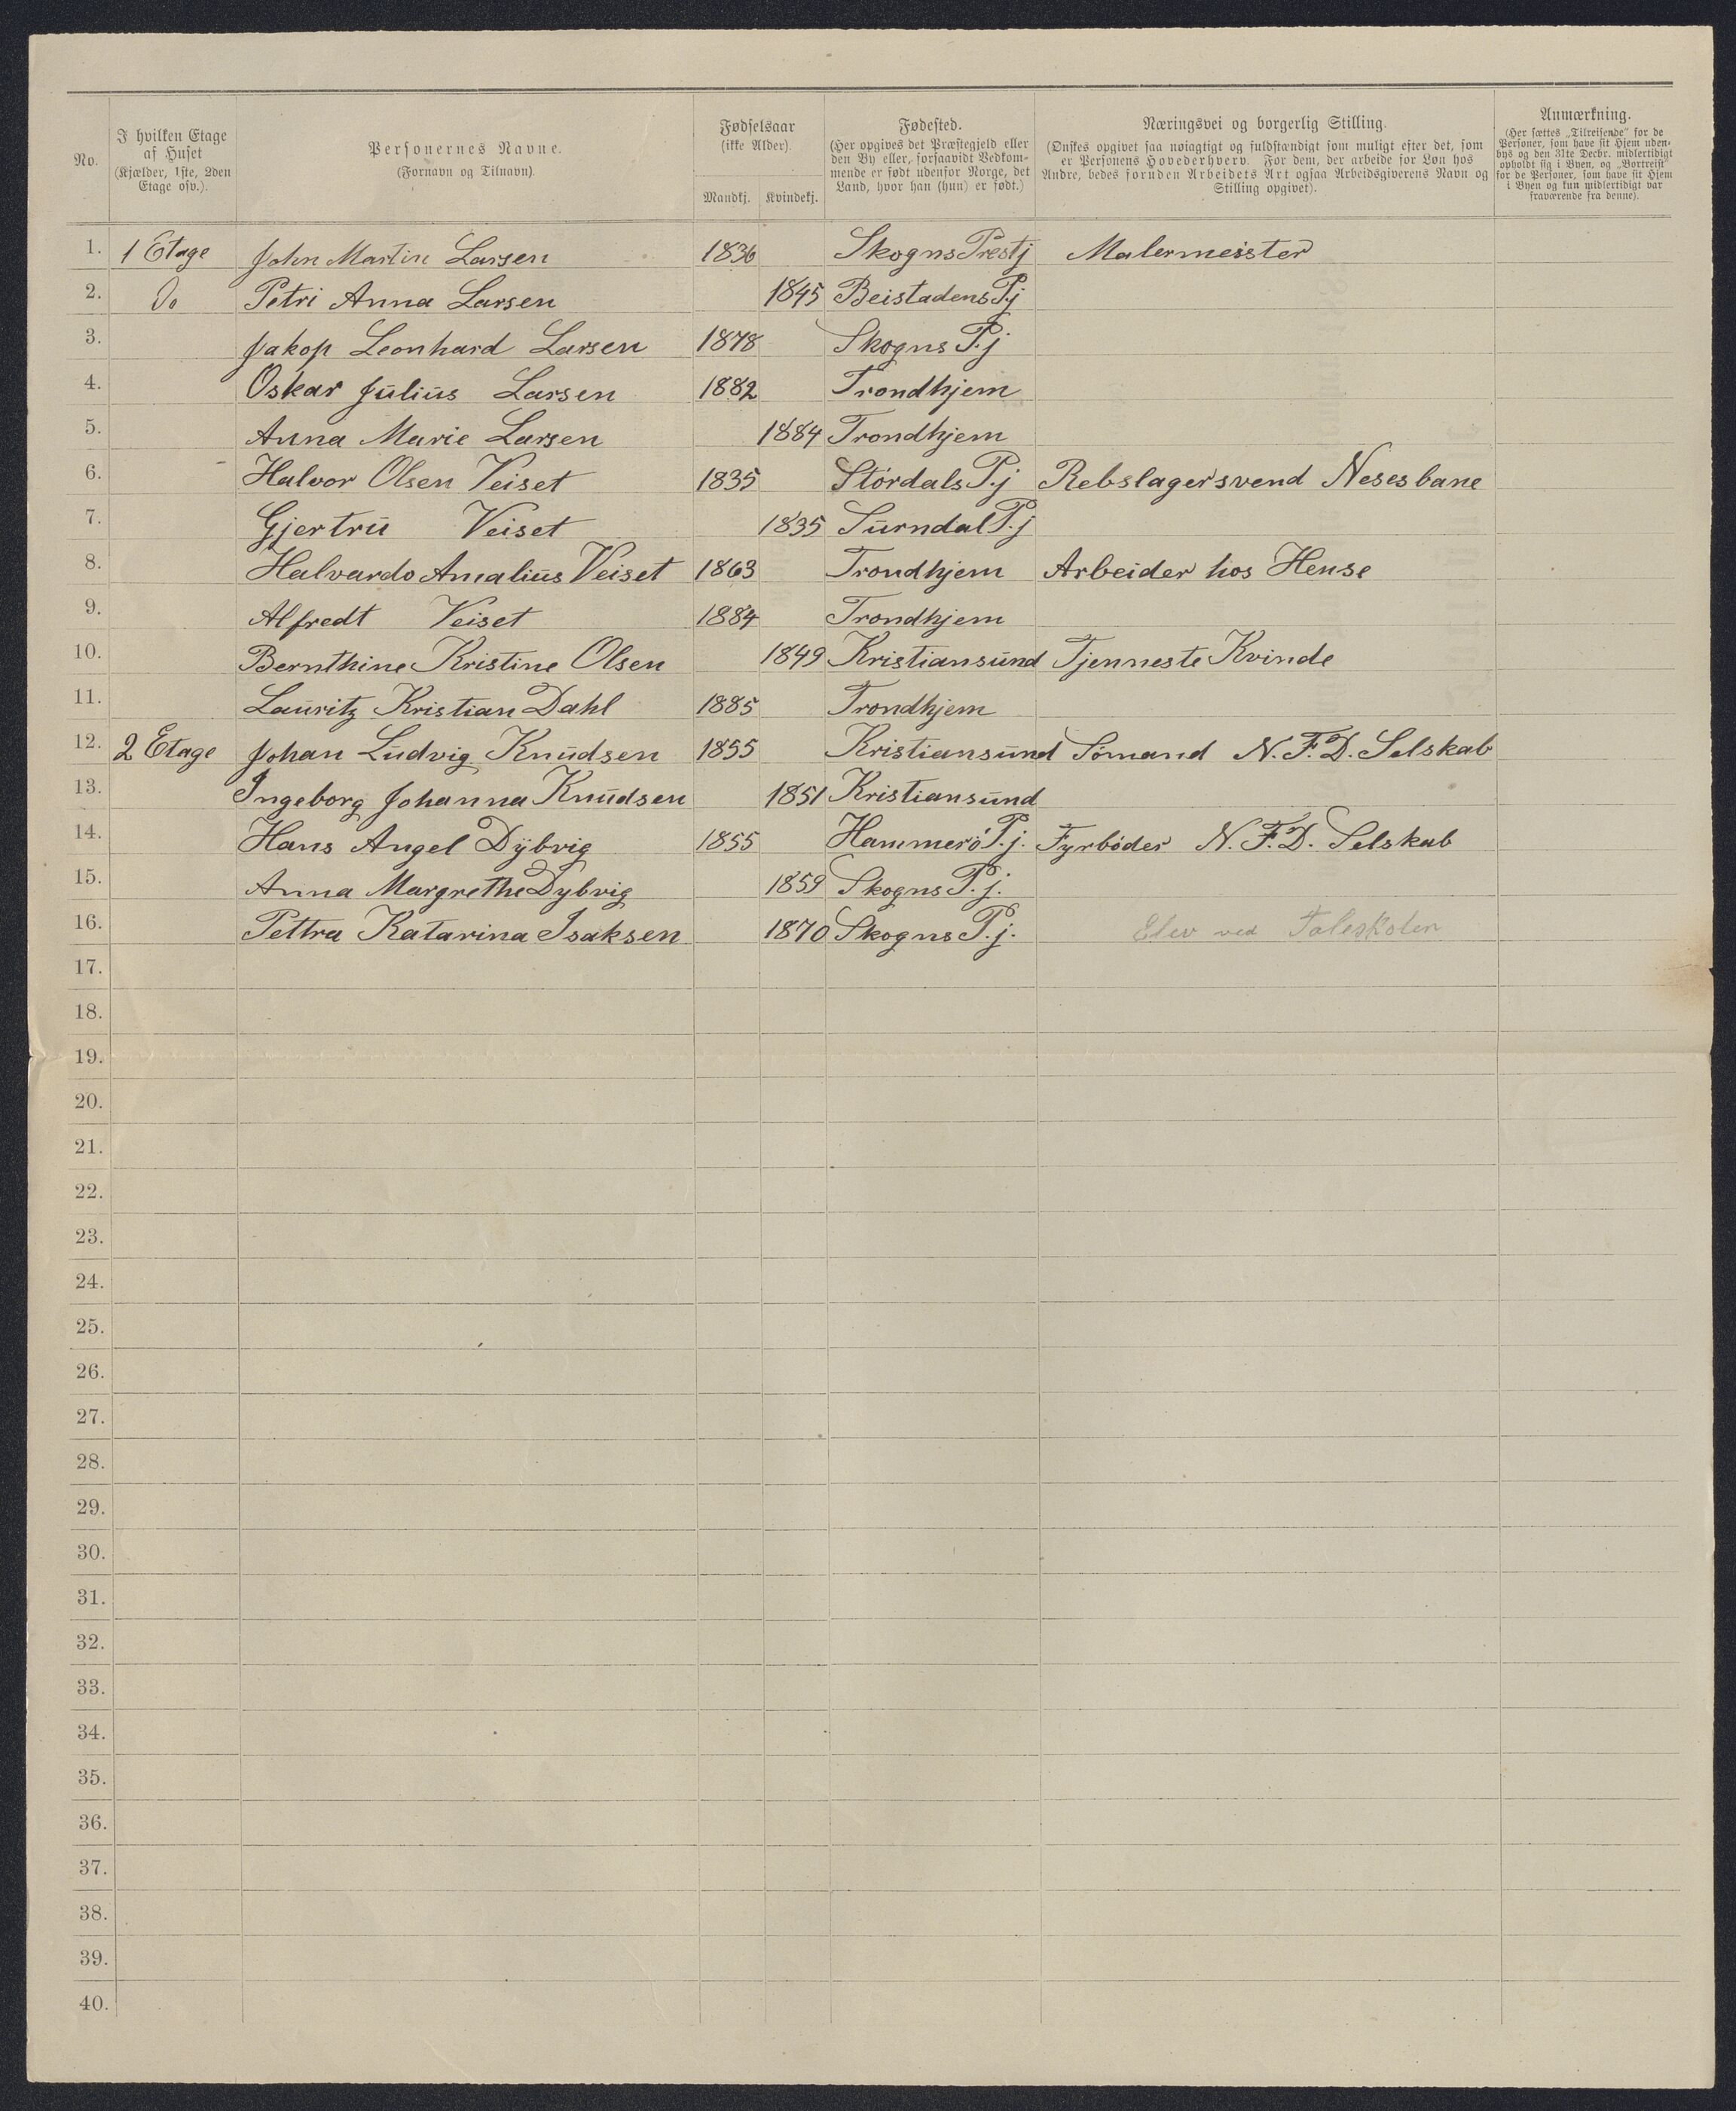 No.
I hvilken Etage
af Huset
(Kjælder, 1ste, 2den
Etage osv.).
Personernes Navne.
(Fornavn og Tilnavn)
Fødselsaar
(ikke Alder).
Mandkj. Kvindekj.
Fødested.
(Her opgives det Præstegjeld eller
den By eller, forsaavidt Vedkom-
mende er født udenfor Norge, det
Land, hvor han (hun) er født.)
Næringsvei og borgerlig Stilling.
(Ønskes opgivet saa nøiagtigt og fuldstændigt som muligt efter det, som
er Personens Hovederhverv. For dem, der arbeide for Løn hos
Andre, bedes foruden Arbeidets Art ogsaa Arbeidsgiverens Navn og
Stilling opgivet).
Anmærkning.
(Her sættes „Tilreisende" for de
Personer, som have sit Hjem uden-
bys og den 31te Decbr. midlertidigt
opholdt sig i Byen, og „Bortreist"
for de Personer, som have sit Hjem
i Byen og kun midlertidigt var
fraværende fra denne).
1. 1 Etage John Martin Larsen 1836 Skogns Prestj Malermeister
2. Do Petri Anna Larsen 1845 Beistadens P.j
3. Jakop Leonhard Larsen 1878 Skogns P.j
4. Oskar Julius Larsen 1882 Trondhjem
5. Anna Marie Larsen 1884 Trondhjem
6. Halvor Olsen Veiset 1835 Stördals P.j Rebslagersvend Nesesbane
7. Gjertru Veiset 1835 Surndal P.j
8. Halvardo Amalius Veiset 1863 Trondhjem Arbeider hos Hense
9. Alfredt Veiset 1884 Trondhjem
10. Bernthine Kristine Olsen 1849 Kristiansund Tjenneste Kvinde
11. Lauritz Kristian Dahl 1885 Trondhjem
12. 2 Etage Johan Ludvig Knudsen 1855 Kristiansund Sömand N.F.D. Selskab
13. Ingeborg Johanna Knudsen 1851 Kristiansund
14. Hans Angel Dybvig 1855 Hammerö P.j. Fyrböder N.F.D. Selskab
15. Anna Margrethe Dybvig 1859 Skogns P.j.
16. Pettra Katarina Isaksen 1870 Skogns P.j. Elev ved Taleskolen
17.
18.
19.
20.
21.
22.
23.
24.
25.
26.
27.
28.
29.
30.
31.
32.
33.
34.
35.
36.
37.
38.
39.
40.